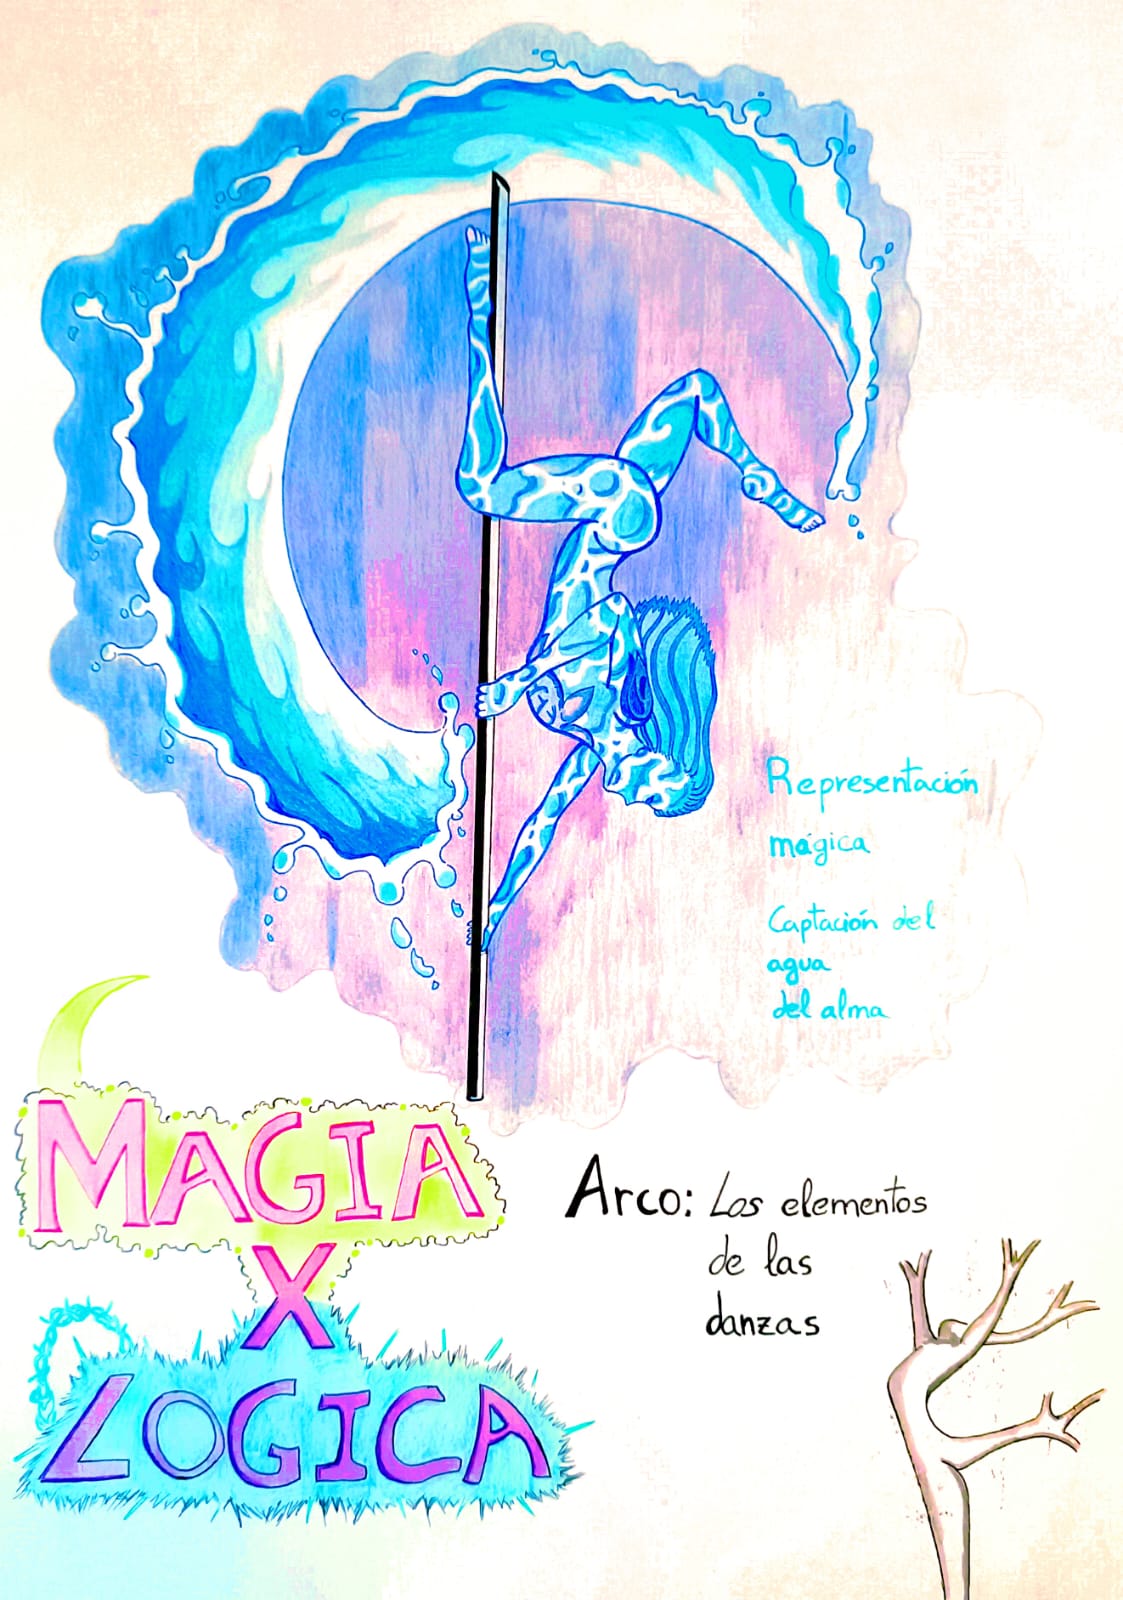 Representación
mágica
Captación del
agua
del alma
MAGIA
X
LOGICA
Arco: Los elementos
de las
danzas